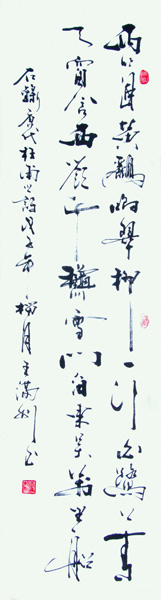 兩個黃鸝鳴翠柳一行白鷺上青
天窗含西嶺千秋雪門泊東吳萬里船
右錄唐代杜甫之詩戊子年月王滿書